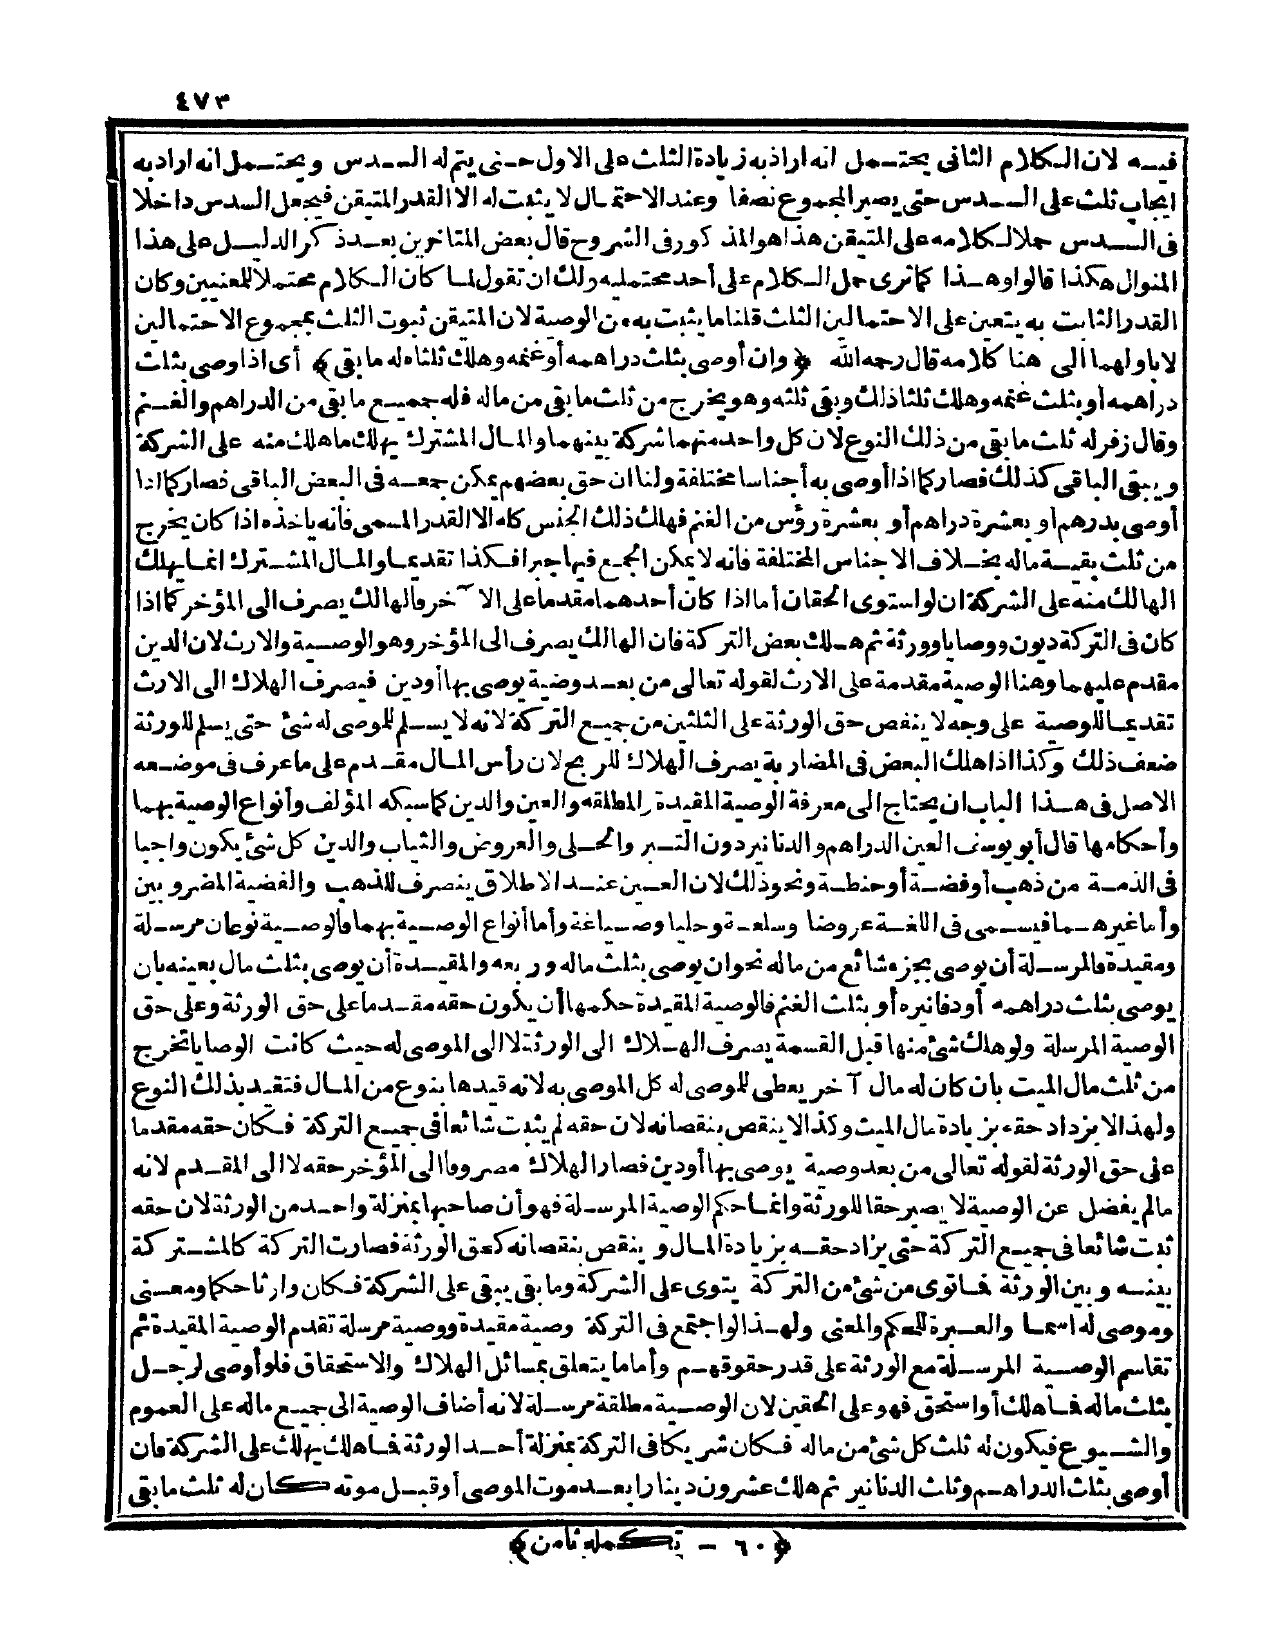 ٤٧٣
فيه لان الكلام الثانى يحتمل انه اراد به زيادة الثلث على الاول حتى يتم له السدس ويحتمل انه اراد به
ايجاب ثلث على السدس حتى يصير المجموع نصفا وعند الاحتمال لا يثبت له الا القدر المتيقن فيجعل السدس داخلا
فى السدس حملا لكلامه على المتيقن هذا هو المذكور فى الشروح قال بعض المتاخرين بعد ذكر الدليل على هذا
المنوال هكذا قالوا وهذا كما ترى حمل الكلام على أحد محتمليه ولك ان تقول لما كان الكلام محتملا للمعنيين وكان
القدر الثابت به يتعين على الاحتمالين الثلث قلنا ما يثبت به من الوصية لان المتيقن ثبوت الثلث بمجموع الاحتمالين
لا باولهما الى هنا كلامه قال رحمه الله ﴿وان أوصى بثلث دراهمه أو غنمه وهلك ثلثاه له ما بقى﴾ أى اذا وصى بثلث
دراهمه أو بثلث غنمه وهلك ثلثا ذلك وبقى ثلثه وهو يخرج من ثلث ما بقى من ماله فله جميع ما بقى من الدراهم والغنم
وقال زفر له ثلث ما بقى من ذلك النوع لان كل واحد منهما شركة بينهما والمال المشترك يهلك ما هلك منه على الشركة
ويبقى الباقى كذلك فصار كما اذا أوصى به أجناسا مختلفة ولنا ان حق بعضهم يمكن جمعه فى البعض الباقى فصار كما اذا
أوصى بدرهم أو بعشرة دراهم أو بعشرة رؤس من الغنم فهلك ذلك الجنس كله الا القدر المسمى فانه ياخذه اذا كان يخرج
من ثلث بقية ماله بخلاف الاجناس المختلفة فانه لا يمكن الجمع فيها جبرا فكذا تقديما والمال المشترك انما يهلك
الهالك منه على الشركة ان لو استوى الحقان أما اذا كان أحدهما مقدما على الآخر فالهالك يصرف الى المؤخر كما اذا
كان فى التركة ديون ووصايا وورثة ثم هلك بعض التركة فان الهالك يصرف الى المؤخر وهو الوصية والارث لان الدين
مقدم عليهما وهنا الوصية مقدمة على الارث لقوله تعالى من بعد وصية يوصى بها أو دين فيصرف الهلاك الى الارث
تقديما للوصية على وجه لا ينقص حق الورثة على الثلثين من جميع التركة لانه لا يسلم للموصى له شئ حتى يسلم للورثة
ضعف ذلك وكذا اذا هلك البعض فى المضاربة يصرف الهلاك للربح لان رأس المال مقدم على ما عرف فى موضعه
الاصل فى هذا الباب ان يحتاج الى معرفة الوصية المقيدة والمطلقة والعين والدين كما سبكه المؤلف وأنواع الوصية بهما
وأحكامها قال أبو يوسف العين الدراهم والدنانير دون التبر والحلى والعروض والثياب والدين كل شئ يكون واجبا
فى الذمة من ذهب أو فضة أو حنطة ونحو ذلك لان العين عند الاطلاق ينصرف للذهب والفضة المضروبين
وأما غيرهما فيسمى فى اللغة عروضا وسلعة وحليا وصياغة وأما أنواع الوصية بهما فالوصية نوعان مرسلة
ومقيدة فالمرسلة أن يوصى بجزء شائع من ماله نحو ان يوصى بثلث ماله وربعه والمقيدة أن يوصى بثلث مال بعينه بان
يوصى بثلث دراهمه أو دنانيره أو بثلث الغنم فالوصية المقيدة حكمها أن يكون حقه مقدما على حق الورثة وعلى حق
الوصية المرسلة ولو هلك شئ منها قبل القسمة يصرف الهلاك الى الورثة لا الى الموصى له حيث كانت الوصايا تخرج
من ثلث مال الميت بان كان له مال آخر يعطى للموصى له كل الموصى به لانه قيدها بنوع من المال فتقيد بذلك النوع
ولهذا لا يزداد حقه بزيادة مال الميت وكذا لا ينقص بنقصانه لان حقه لم يثبت شائعا فى جميع التركة فكان حقه مقدما
على حق الورثة لقوله تعالى من بعد وصية يوصى بها أو دين فصار الهلاك مصروفا الى المؤخر حقه لا الى المقدم لانه
مالم يفضل عن الوصية لا يصير حقا للورثة وانما حكم الوصية المرسلة فهو أن صاحبها بمنزلة واحد من الورثة لان حقه
ثبت شائعا فى جميع التركة حتى يزاد حقه بزيادة المال وينقص بنقصانه كحق الورثة فصارت التركة كالمشتركة
بينه وبين الورثة فما توى من شئ من التركة يتوى على الشركة وما بقى يبقى على الشركة فكان وارثا حكما ومعنى
وموصى له اسما والعبرة للحكم والمعنى ولهذا لو اجتمع فى التركة وصية مقيدة ووصية مرسلة تقدم الوصية المقيدة ثم
تقاسم الوصية المرسلة مع الورثة على قدر حقوقهم وأما ما يتعلق بمسائل الهلاك والاستحقاق فلو أوصى لرجل
بثلث ماله فما هلك أو استحق فهو على الحقين لان الوصية مطلقة مرسلة لانه أضاف الوصية الى جميع ماله على العموم
والشيوع فيكون له ثلث كل شئ من ماله فكان شريكا فى التركة بمنزلة أحد الورثة فما هلك يهلك على الشركة فان
أوصى بثلث الدراهم وثلث الدنانير ثم هلك عشرون دينارا بعد موت الموصى أو قبل موته كان له ثلث ما بقى
﴿٦٠ - تكمله ثامن﴾